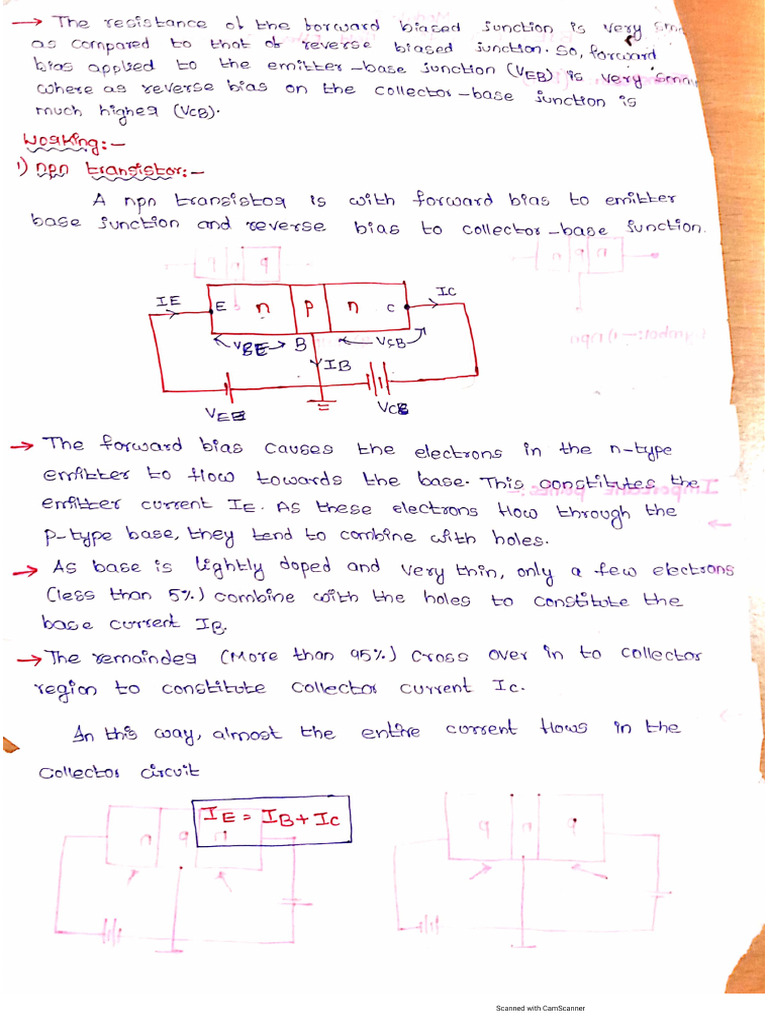 → The resistance of the forward biased junction is very
as compared to that of reverse biased junction. So, forward
bias applied to the emitter-base junction (VEB) is very
where as reverse bias on the collector-base junction is
much higher (VCB).
Working:-
1) npn transistor:-
A npn transistor is with forward bias to emitter
base junction and reverse bias to collector-base junction.
IE E n p n C IC
VBE B VCB
IB
VEB VCB
→ The forward bias causes the electrons in the n-type
emitter to flow towards the base. This constitutes the
emitter current IE. As these electrons flow through the
p-type base, they tend to combine with holes.
→ As base is lightly doped and very thin, only a few electrons
(less than 5%) combine with the holes to constitute the
base current IB.
→ The remainder (More than 95%) cross over in to collector
region to constitute collector current Ic.
In this way, almost the entire current flows in the
collector circuit
IE = IB + IC
Scanned with CamScanner